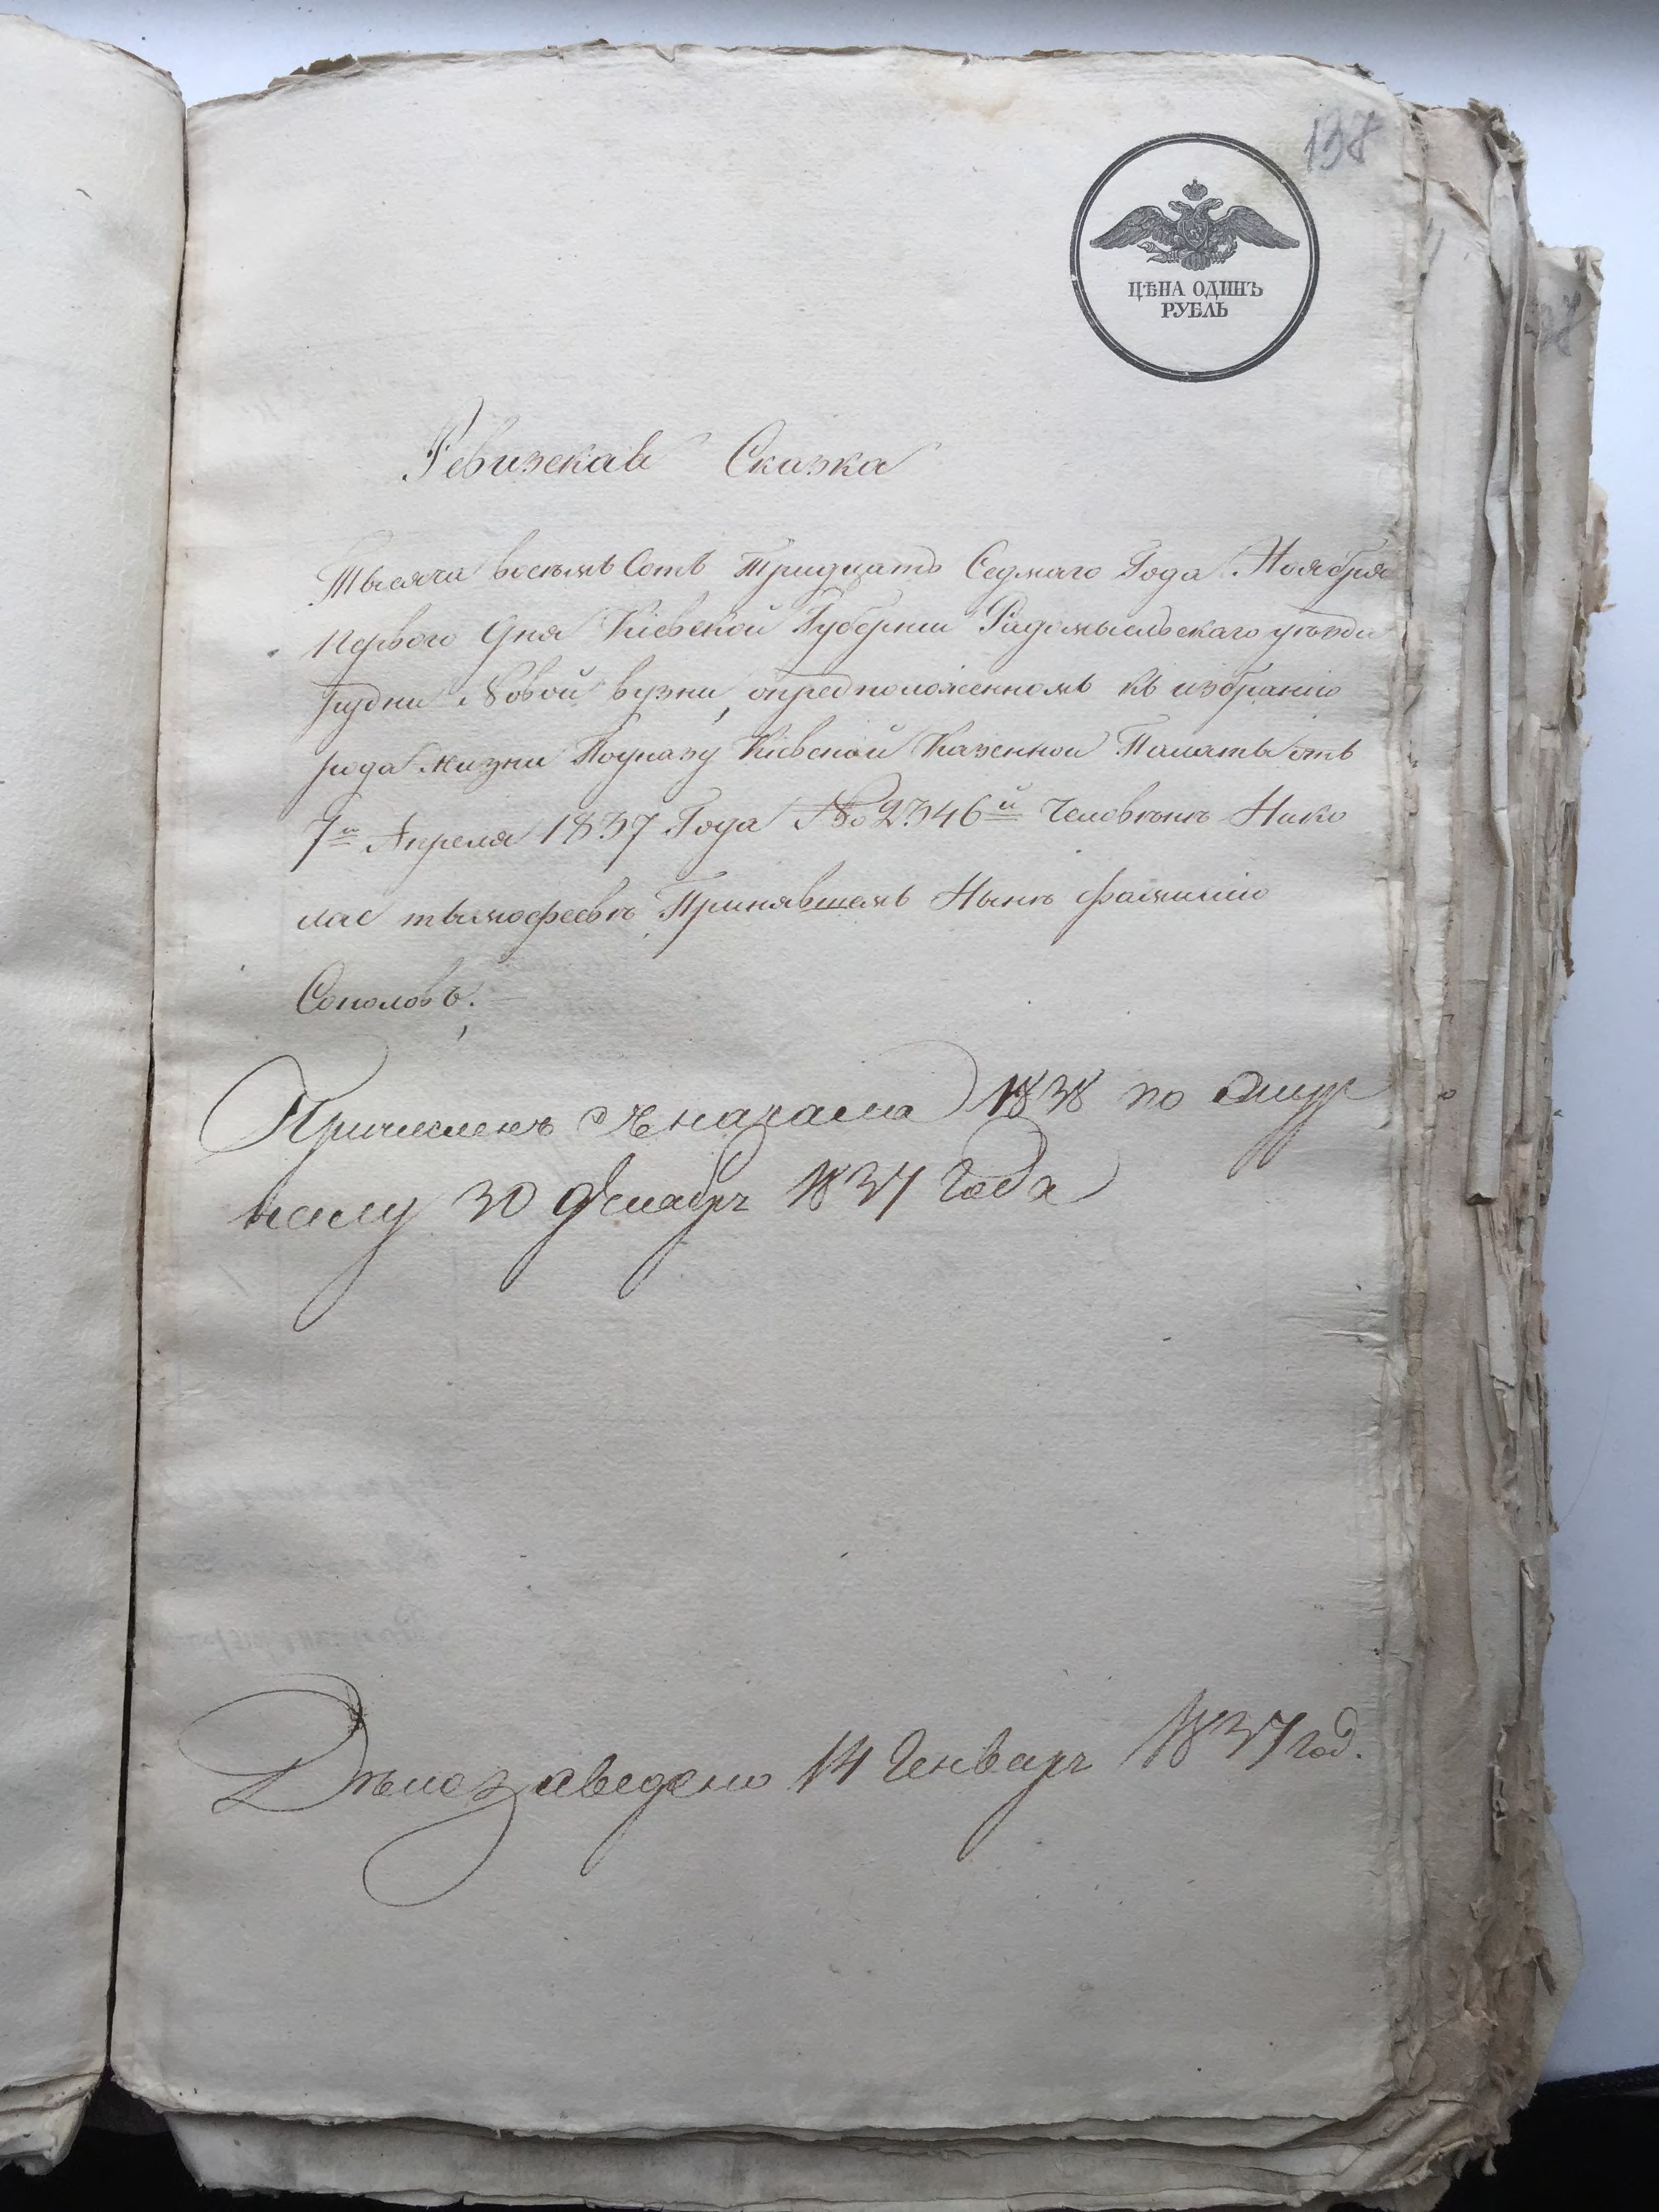 138
ЦѢНА ОДИНЪ
РУБЛЬ
Ревизская Сказка
Тысяча восемъ Сотъ Тридцать Седмаго Года Ноября
Первого Дня Кіевской Губерніи Радомысльскаго уѣзда
Рудни Новой вузни, опредположенномъ къ избранію
рода жизни Поуказу Кіевской Казенной Палаты отъ
7й Апреля 1837 Года №2346й Человѣкѣ Нико
лае тымофеевѣ Принявшемъ Нынѣ фамилію
Соколовъ.
Причисленъ съ начала 1838 по
30 декабря 1837 года
Дѣло заведено 14 Генваря 1837 год.